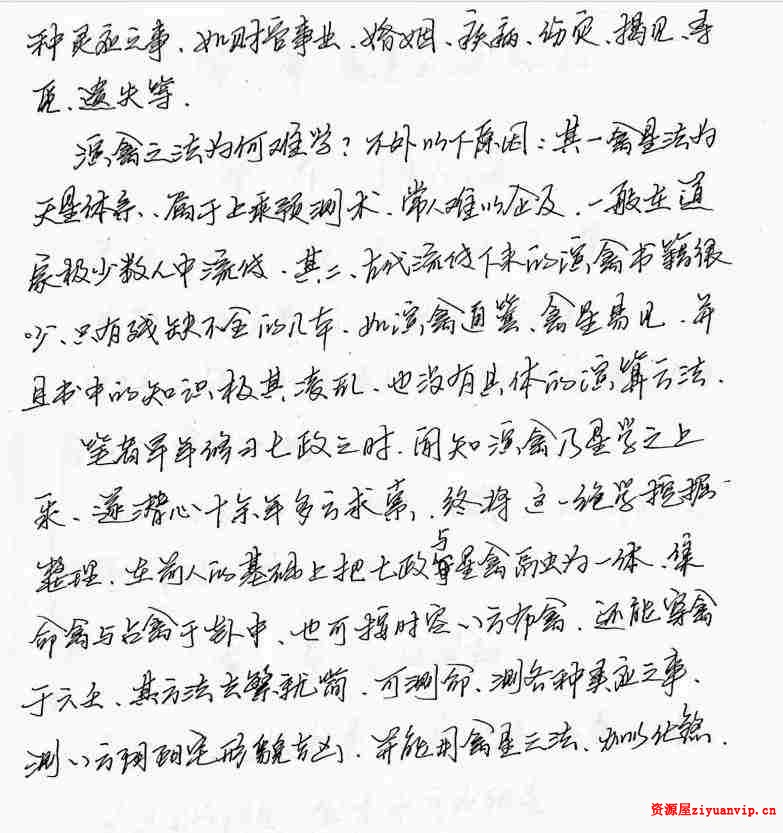 种灵应之事、如财官事业、婚姻、疾病、伤灾、揭见、寻
匿、遗失等.
演禽之法为何难学?不外以下原因:其一禽星法为
天星体系、属于上乘预测术、常人难以企及.一般在道
家极少数人中流传.其二、古代流传下来的演禽书籍很
少、只有残缺不全的几本.如演禽通纂、禽星易见.并
且书中的知识极其凌乱.也没有具体的演算方法.
笔者早年修习七政之时.闻知演禽乃星学之上
乘、遂潜心十余年多方求索,终将这一绝学挖掘
整理.在前人的基础上把七政与星禽融为一体.集
命禽与占禽于卦中、也可按时空八方布禽.还能穿禽
于六壬、其方法去繁就简.可测命、测各种事应之事、
测八方阴阳宅形貌吉凶.并能用禽星之法、加以化煞.
资源屋ziyuanvip.cn